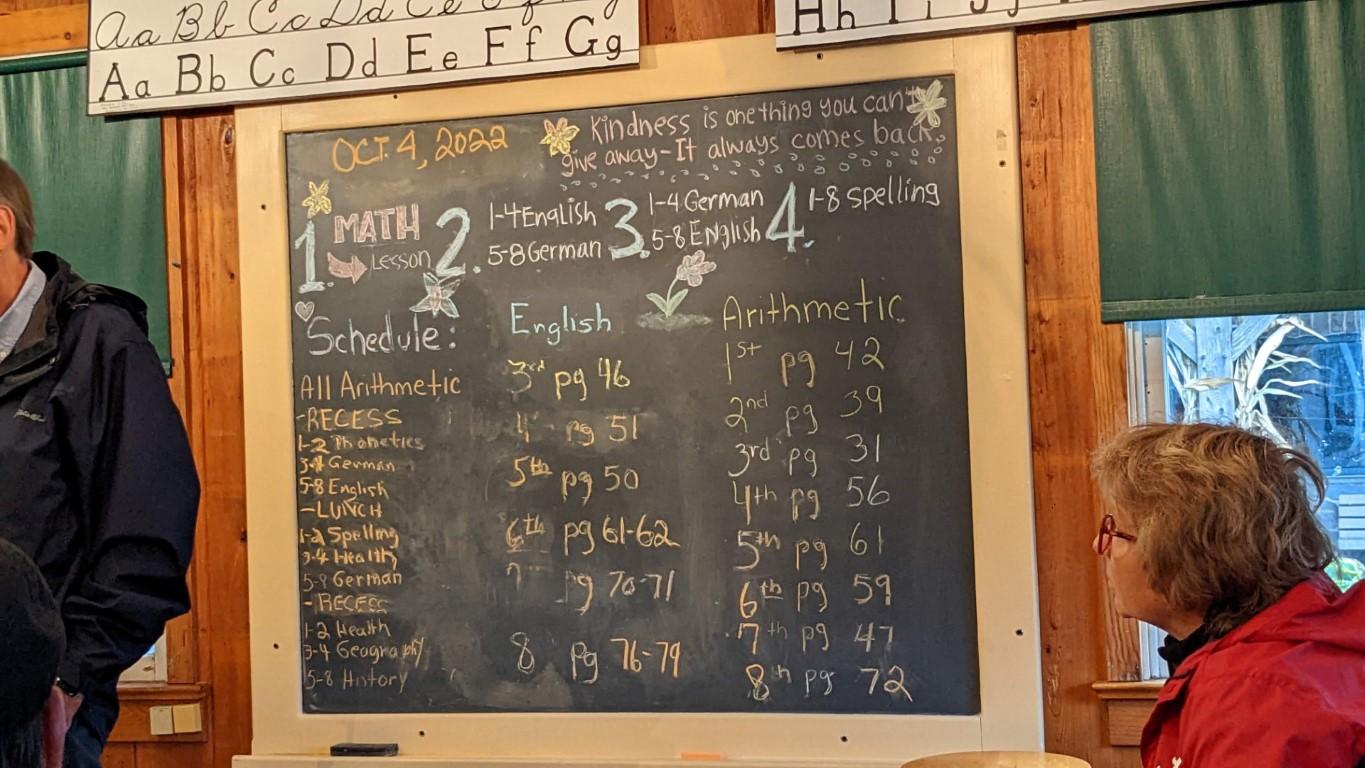 Aa Bb Cc Dd Ee
Aa Bb Cc Dd Ee Ff Gg
Hh Ii Jj
OCT. 4, 2022
Kindness is one thing you can't
give away-It always comes back.
1. MATH
Lesson
2. 1-4 English
5-8 German
3. 1-4 German
5-8 English
4. 1-8 spelling
Schedule:
All Arithmetic
-RECESS
1-2 Phonetics
3-4 German
5-8 English
-LUNCH
1-2 Spelling
3-4 Health
5-8 German
-RECESS
1-2 Health
3-4 Geography
5-8 History
English
3rd pg 46
4 pg 51
5th pg 50
6th pg 61-62
7 pg 70-71
8 pg 76-79
Arithmetic
1st pg 42
2nd pg 39
3rd pg 31
4th pg 56
5th pg 61
6th pg 59
7th pg 47
8th pg 72